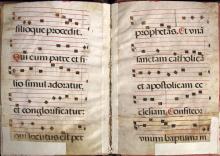 filioque procedit.
Qui cum patre et fi
lio simul adoratur,
et conglorificatur:
qui locutus est per
prophetas. Et vna
sanctam catholica
et apostolicam ec
clesiam. Confiteor
vnum baptisma